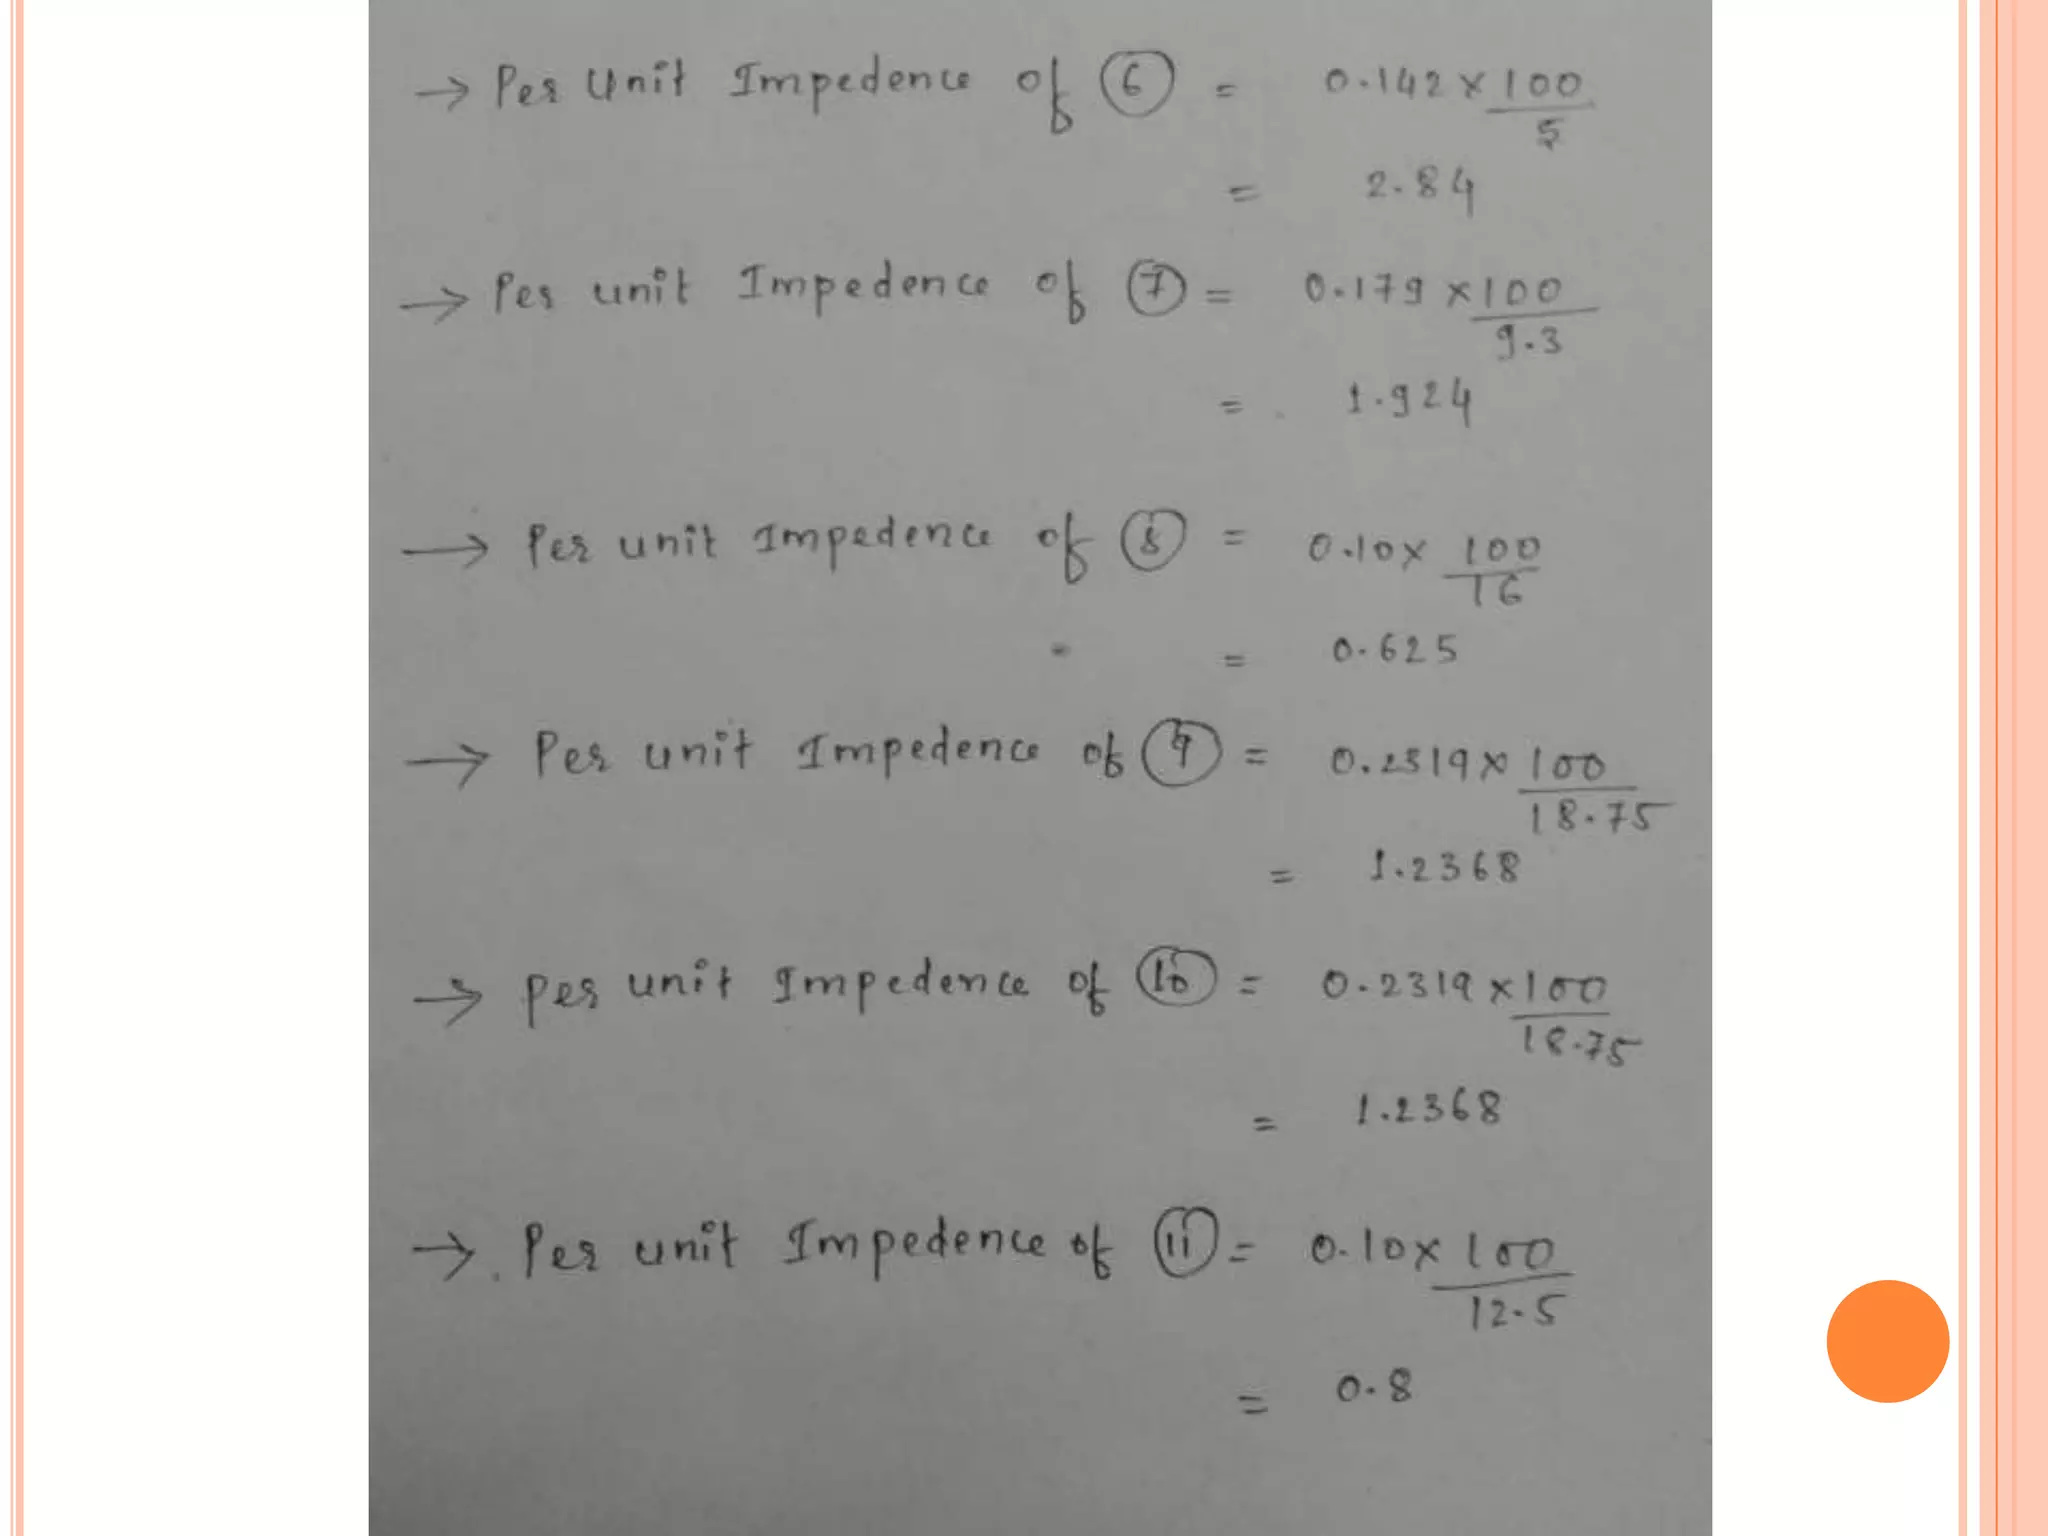 → Per Unit Impedence of ⑥ = 0.142 × 100/5
= 2.84
→ Per unit Impedence of ⑦ = 0.179 × 100/9.3
= 1.924
→ Per unit Impedence of ⑧ = 0.10 × 100/16
= 0.625
→ Per unit Impedence of ⑨ = 0.2319 × 100/18.75
= 1.2368
→ Per unit Impedence of ⑩ = 0.2319 × 100/18.75
= 1.2368
→ Per unit Impedence of ⑪ = 0.10 × 100/12.5
= 0.8